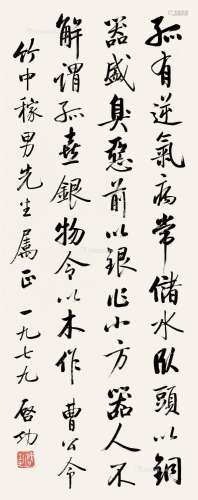 孤有逆氣病常儲水臥頭以銅
器盛臭惡前以銀作小方器人不
解謂孤喜銀物令以木作 曹公令
竹中稼男先生属正 一九七九 啓功